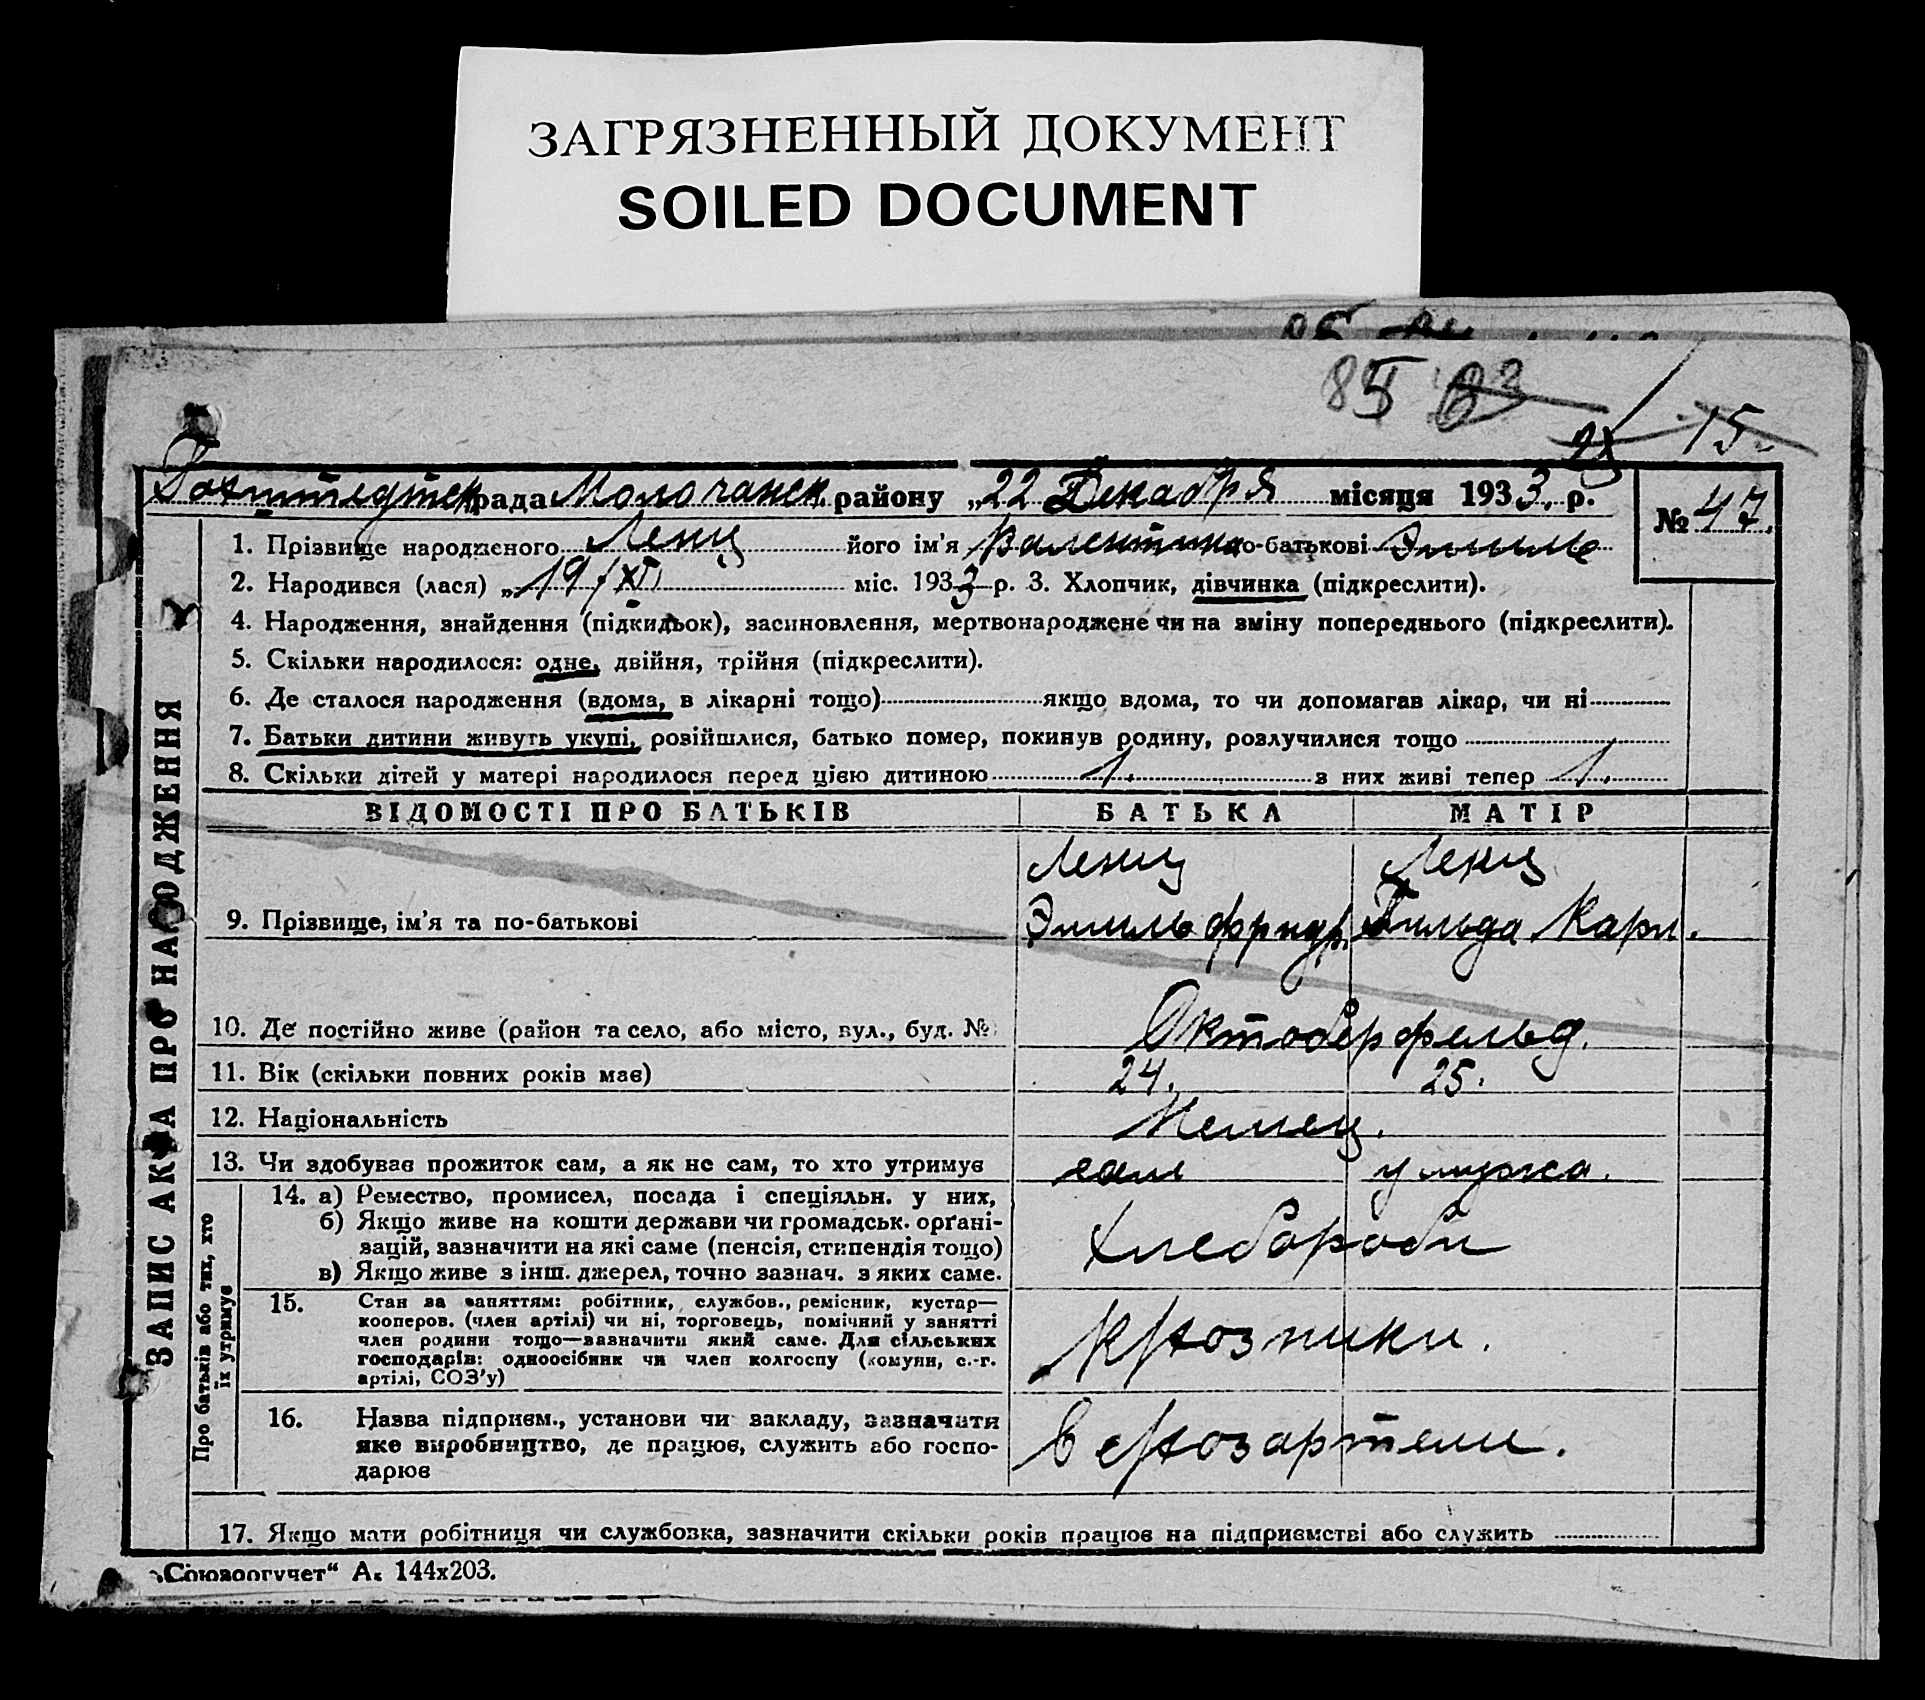 ЗАГРЯЗНЕННЫЙ ДОКУМЕНТ
SOILED DOCUMENT
85 83
15
рада Молочанск. району „22 Декабря місяця 1933. р.
№ 47.
1. Прізвище народженого Ленц його ім'я Валентина по-батькові Эмиль
2. Народився (лася) „19/XII міс. 1933 р. 3. Хлопчик, дівчинка (підкреслити).
4. Народження, знайдення (підкидьок), засиновлення, мертвонароджене чи на зміну попереднього (підкреслити).
5. Скільки народилося: одне, двійня, трійня (підкреслити).
6. Де сталося народження (вдома, в лікарні тощо) якщо вдома, то чи допомагав лікар, чи ні
7. Батьки дитини живуть укупі, розійшлися, батько помер, покинув родину, розлучилися тощо
8. Скільки дітей у матері народилося перед цією дитиною 1. з них живі тепер 1.
ЗАПИС АКТА ПРО НАРОДЖЕННЯ
ВІДОМОСТІ ПРО БАТЬКІВ БАТЬКА МАТІР
Ленц Ленц
9. Прізвище, ім'я та по-батькові Эмиль Фридр. Гильда Карл.
10. Де постійно живе (район та село, або місто, вул., буд. № Октоберфельд.
11. Вік (скільки повних років має) 24. 25.
12. Національність Немец.
13. Чи здобуває прожиток сам, а як не сам, то хто утримує сам у мужа.
Про батьків або тих, хто їх утримує
14. а) Ремество, промисел, посада і спеціяльн. у них,
б) Якщо живе на кошти держави чи громадськ. орґані-
зацій, зазначити на які саме (пенсія, стипендія тощо)
в) Якщо живе з інш. джерел, точно зазнач. з яких саме.
Хлебороби
15. Стан за заняттям: робітник, службов., ремісник, кустар—
кооперов. (член артілі) чи ні, торговець, помічний у занятті
член родини тощо—зазначити який саме. Для сільських
господарів: одноосібник чи член колгоспу (комуни, с.-г.
артілі, СОЗ'у)
16. Назва підприєм., установи чи закладу, зазначати
яке виробництво, де працює, служить або госпо-
дарює
17. Якщо мати робітниця чи службовка, зазначити скільки років працює на підприємстві або служить
„Союзоргучет“ А. 144х203.